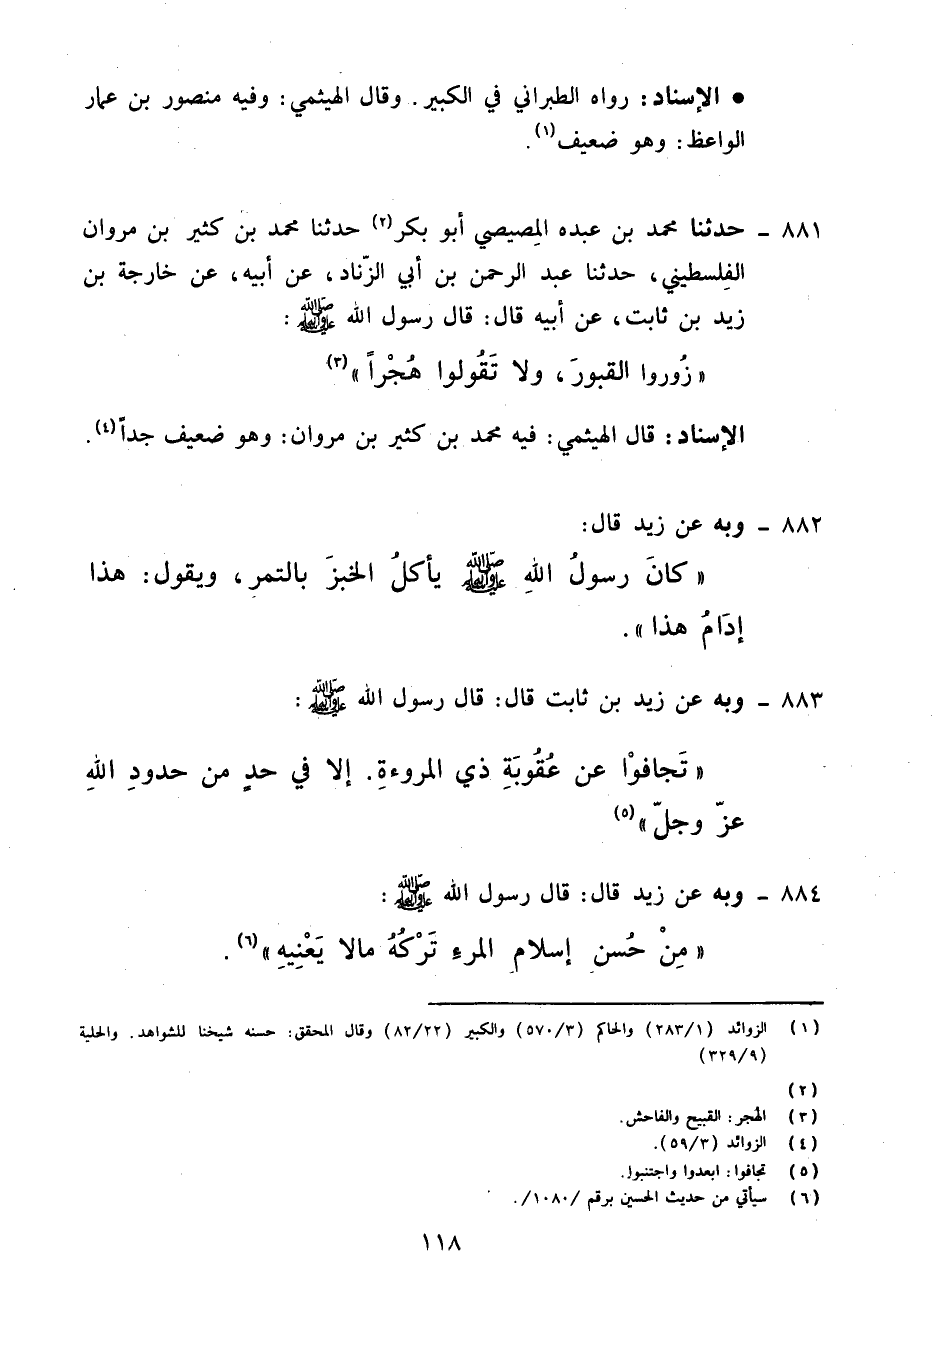 ● الإسناد: رواه الطبراني في الكبير. وقال الهيثمي: وفيه منصور بن عمار
الواعظ: وهو ضعيف(١).
٨٨١ - حدثنا محمد بن عبده المِصيصي أبو بكر(٢) حدثنا محمد بن كثير بن مروان
الفِلسطيني، حدثنا عبد الرحمن بن أبي الزّناد، عن أبيه، عن خارجة بن
زيد بن ثابت، عن أبيه قال: قال رسول الله ﷺ:
« زُوروا القبورَ، ولا تَقُولوا هُجْراً »(٣)
الإسناد: قال الهيثمي: فيه محمد بن كثير بن مروان: وهو ضعيف جداً(٤).
٨٨٢ - وبه عن زيد قال:
« كانَ رسولُ اللهِ ﷺ يأكلُ الخبزَ بالتمرِ، ويقول: هذا
إدَامُ هذا ».
٨٨٣ - وبه عن زيد بن ثابت قال: قال رسول الله ﷺ:
« تَجافوْا عن عُقُوبَةِ ذي المروءةِ. إلا في حدٍ من حدودِ اللهِ
عزّ وجلّ »(٥)
٨٨٤ - وبه عن زيد قال: قال رسول الله ﷺ:
« مِنْ حُسنِ إسلامِ المرءِ تَرْكُهُ مالا يَعْنِيهِ »(٦).
(١) الزوائد (٢٨٣/١) والحاكم (٥٧٠/٣) والكبير (٨٢/٢٢) وقال المحقق: حسنه شيخنا للشواهد. والحلية
(٣٢٩/٩)
(٢)
(٣) الهُجر: القبيح والفاحش.
(٤) الزوائد (٥٩/٣).
(٥) تجافوا: ابعدوا واجتنبوا.
(٦) سيأتي من حديث الحسين برقم /١٠٨٠/.
١١٨